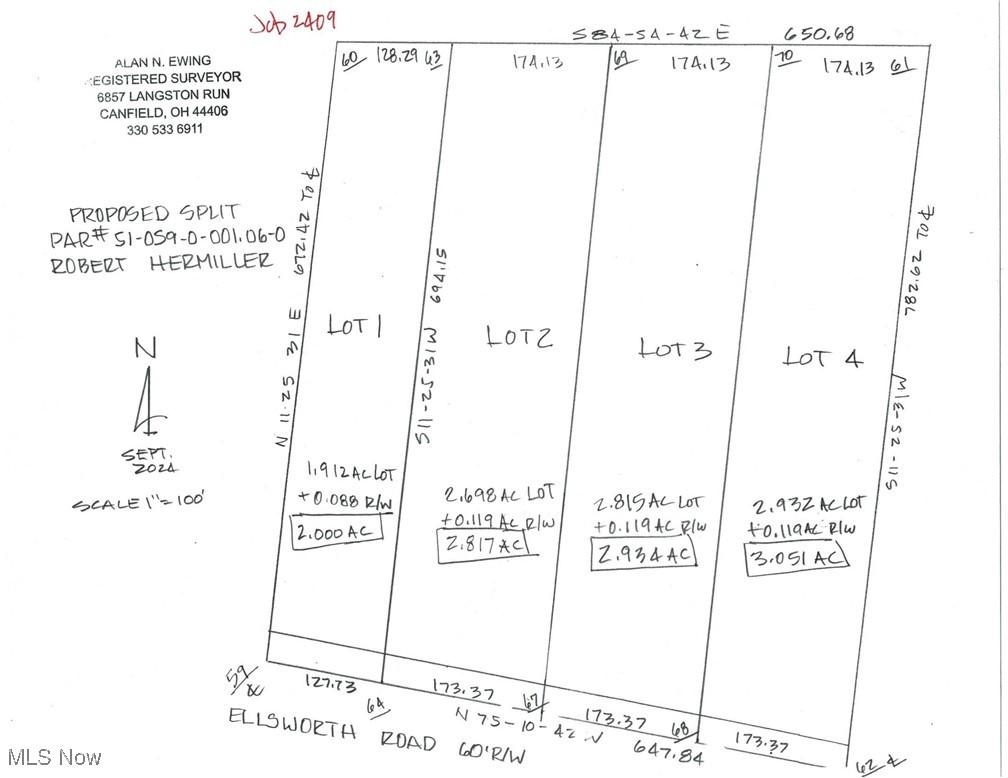 Job 2409
ALAN N. EWING
REGISTERED SURVEYOR
6857 LANGSTON RUN
CANFIELD, OH 44406
330 533 6911
S84-54-42 E 650.68
60 128.29 63 174.13 69 174.13 70 174.13 61
PROPOSED SPLIT
PAR# 51-059-0-001.06-0
ROBERT HERMILLER
N 11.25 31 E 672.42 TO ℄
S11-25-31W 694.15
S11-25-31W 782.62 TO ℄
N
SEPT.
2024
SCALE 1"=100'
LOT 1
LOT 2
LOT 3
LOT 4
1.912 AC LOT
+0.088 R/W
2.000 AC
2.698 AC LOT
+0.119 AC R/W
2.817 AC
2.815 AC LOT
+0.119 AC R/W
2.934 AC
2.932 AC LOT
+0.119 AC R/W
3.051 AC
59 ℄
127.73 64 173.37 67 173.37 68 173.37 62 ℄
N 75-10-42 W 647.84
ELLSWORTH ROAD 60' R/W
MLS Now